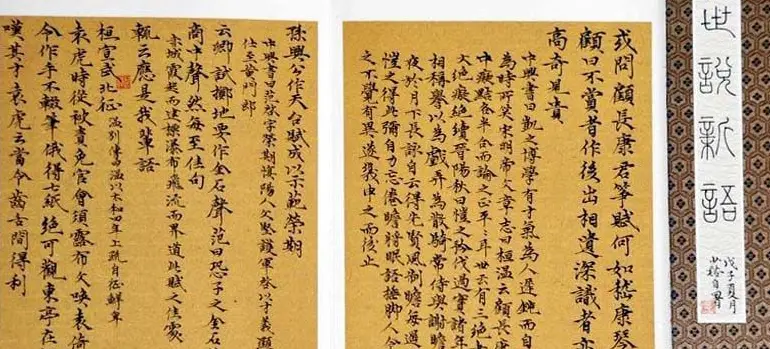 世說新語
戊子夏月
或問顧長康君箏賦何如嵇康琴
顧曰不賞者作後出相遺深識者亦
高奇見貴
中興書曰愷之博學有才氣為人遲鈍而自
為時所笑宋明帝文章志曰桓溫云顧長康
中癡黠各半合而論之正平平耳世云有三絕
文絕癡絕續晉陽秋曰愷之矜伐過實諸年
相稱譽以為戲弄為散騎常侍與謝瞻
夜於月下長詠自云得先賢風制瞻每遙
愷之得此彌自力忘倦瞻將眠語搥腳人令
之不覺有異遂幾申旦而後止
孫興公作天台賦成以示范榮期
中興書曰范啟字榮期慎陽人父堅護軍啟以才義顯
仕至黃門郎
云卿試擲地要作金石聲范曰恐子之金石
商中聲然每至佳句
赤城霞起而建標瀑布飛流而界道此賦之佳處
輒云應是我輩語
桓宣武北征溫別傳曰溫以太和四年上疏自征鮮卑
袁虎時從被責免官會須露布文喚袁倚
令作手不輟筆俄得七紙絕可觀東亭在
嘆其才袁虎云當令齒舌間得利